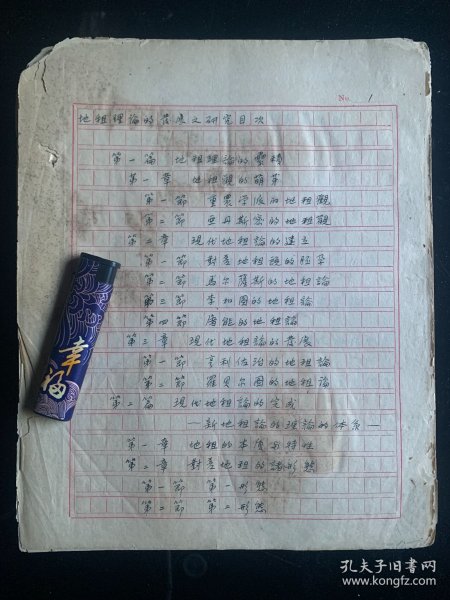 No. 1
地租理論的發展之研究目次
第一篇 地租理論的變轉
第一章 地租觀的萌芽
第一節 重農学派的地租觀
第二節 亞丹斯密的地租觀
第二章 現代地租論的建立
第一節 對差地租說的胚孕
第二節 馬尔薩斯的地租論
第三節 李加圖的地租論
第四節 屠能的地租論
第三章 現代地租論的發展
第一節 亨利佐治的地租論
第二節 羅貝尔圖的地租論
第二篇 現代地租論的完成
—新地租論的理論的体系—
第一章 地租的本质与特性
第二章 對差地租的諸形態
第一節 第一形態
第二節 第二形態
幸福
孔夫子旧书网
www.kongfz.com